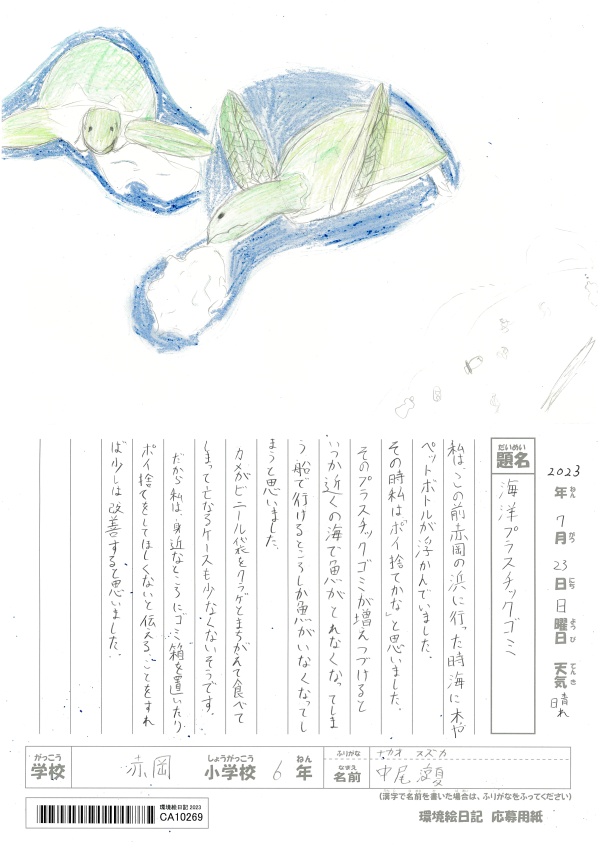 2023年 7月 23日 日曜日 天気 晴れ
だいめい
題名
海洋プラスチックゴミ
私は、この前赤岡の浜に行った時海に木や
ペットボトルが浮かんでいました。
その時私は「ポイ捨てかな」と思いました。
そのプラスチックゴミが増えつづけると
いつか近くの海で魚がとれなくなってしま
う船で行けるところしか魚がいなくなってし
まうと思いました。
カメがビニール袋をクラゲとまちがえて食べて
しまって亡なるケースも少なくないそうです。
だから私は、身近なところにゴミ箱を置いたり
ポイ捨てをしてほしくないと伝えることをすれ
ば少しは改善すると思いました。
がっこう しょうがっこう ねん
学校 赤岡 小学校 6年
ふりがな ナカオ スズカ
なまえ
名前 中尾涼夏
(漢字で名前を書いた場合は、ふりがなをふってください)
環境絵日記 2023
CA10269
環境絵日記 応募用紙